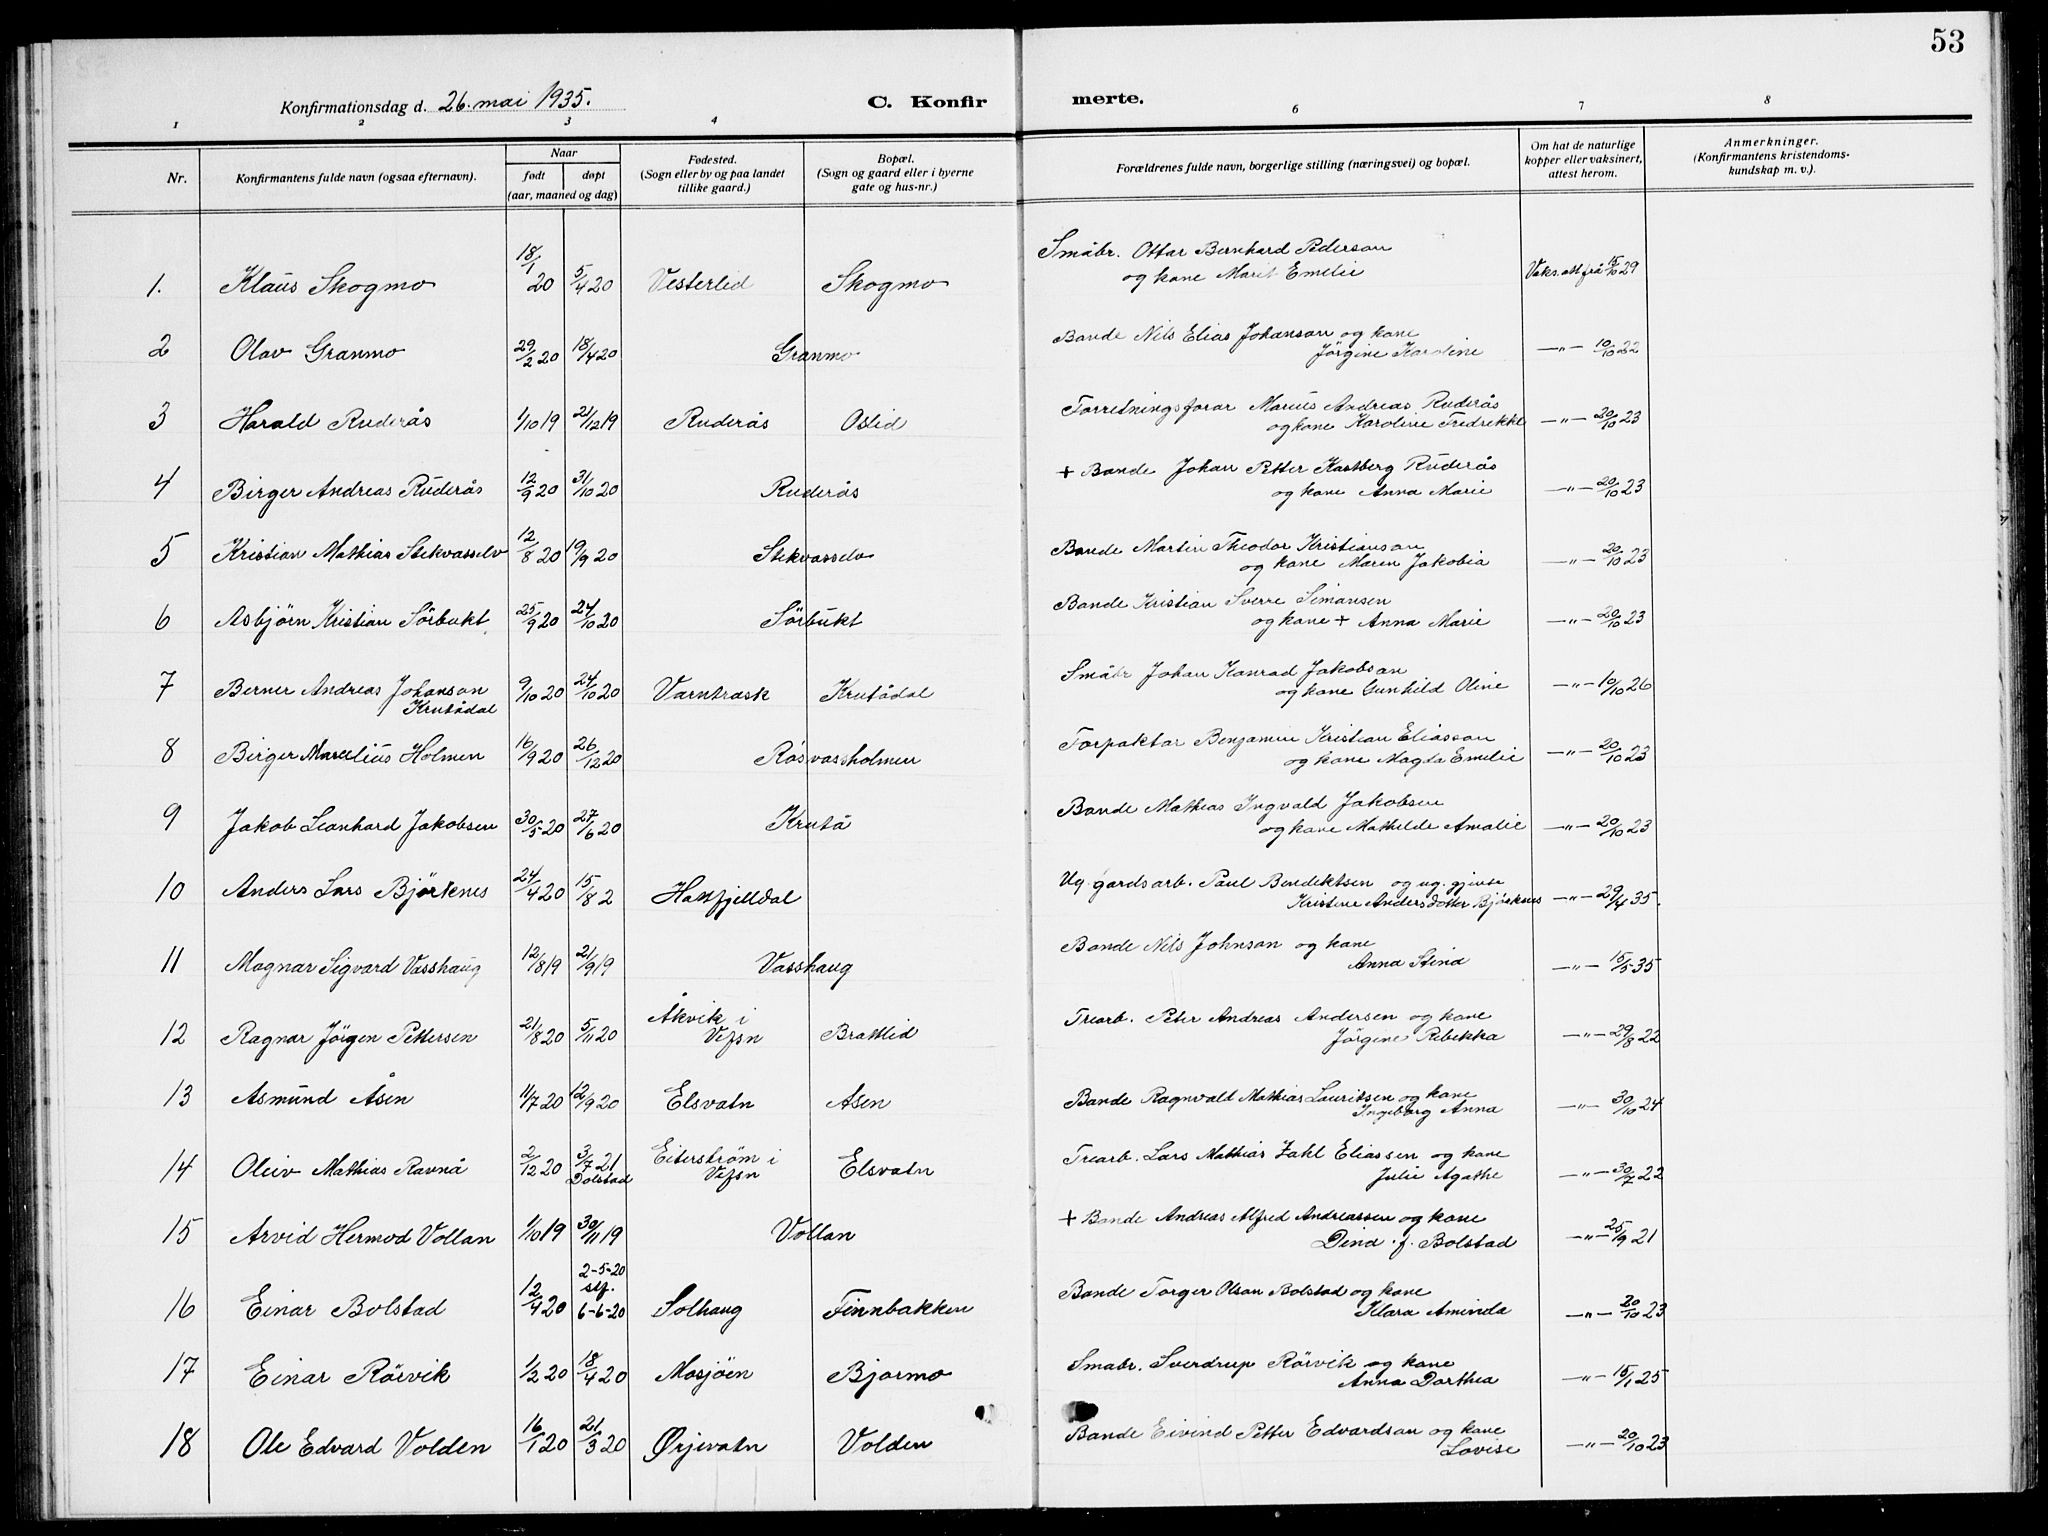 53
Konfirmationsdag d. 26. mai 1935. C. Konfir merte.
1 2 3 4 6 7 8
Nr. Konfirmantens fulde navn (ogsaa efternavn). Naar født døpt (aar, maaned og dag) Fødested. (Sogn eller by og paa landet tillike gaard.) Bopæl. (Sogn og gaard eller i byerne gate og hus-nr.) Forældrenes fulde navn, borgerlige stilling (næringsvei) og bopæl. Om hat de naturlige kopper eller vaksinert, attest herom. Anmerkninger. (Konfirmantens kristendoms-kundskap m. v.).
1. Klaus Skogmo 18/1 20 5/4 20 Vesterlid Skogmo Småbr. Ottar Bernhard Pederson og kone Marit Emelie Vaks.att frå 15/10 29
2 Olav Granmo 29/2 20 18/4 20 Granmo Bonde Nils Elias Johanson og kone Jörgine Karoline —"— 10/10 22
3 Harald Ruderås 1/10 19 21/12 19 Ruderås Oslid Forretningsførar Marius Andreas Ruderås og kone Karoline Fredrekke —"— 20/10 23
4 Birger Andreas Ruderås 12/9 20 31/10 20 Ruderås + Bonde Johan Petter Kastberg Ruderås og kone Anna Marie —"— 20/10 23
5 Kristian Mathias Stekvasselv 12/8 20 19/9 20 Stekvasselv Bonde Martin Theodor Kristianson og kone Maren Jakobia —"— 20/10 23
6 Asbjørn Kristian Sörbukt 25/9 20 24/10 20 Sörbukt Bonde Kristian Sverre Simonsen og kone + Anna Marie —"— 20/10 23
7 Berner Andreas Johanson Krutådal 9/10 20 24/10 20 Varntrask Krutådal Småbr Johan Konrad Jakobson og kone Gunhild Oline —"— 10/10 26
8 Birger Marcelius Holmen 16/9 20 26/12 20 Rösvassholmen Forpaktar Benjamin Kristian Eliasson og kone Magda Emelie —"— 20/10 23
9 Jakob Leonhard Jakobsen 30/5 20 27/6 20 Krutå Bonde Mathias Ingvald Jakobsen og kone Mathilde Amalie —"— 20/10 23
10 Anders Lars Björknes 24/4 20 15/8 2 Hattfjelldal Ug. gardsarb. Paul Bendiktsen og ug. gjente Kristine Andersdotter Björknes —"— 29/4 35.
11 Magnar Sigvard Vasshaug 12/8 19 21/9 19 Vasshaug Bonde Nils Johnson og kone Anna Stina —"— 15/5 35
12 Ragnar Jörgen Pettersen 21/8 20 5/11 20 Åkvik i Vefsn Brattlid Trearb. Peter Andreas Andersen og kone Jörgine Rebekka —"— 29/8 22
13 Asmund Åsen 11/7 20 12/9 20 Elsvatn Asen Bonde Ragnvalt Mathias Lauritsen og kone Ingeborg Anna —"— 30/10 24
14 Oleiv Mathias Ravnå 2/12 20 3/7 21 Dolstad Eiterström i Vefsn Elsvatn Trearb. Lars Mathias Zahl Eliassen og kone Julie Agathe —"— 30/7 22
15 Arvid Hermod Vollan 1/10 19 30/11 19 Vollan + Bonde Andreas Alfred Andreassen og kone Dina f. Bolstad —"— 25/9 21
16 Einar Bolstad 12/4 20 2-5-20 stf. 6-6-20 Solhaug Finnbakken Bonde Torger Olson Bolstad og kone Klara Aminda —"— 20/10 23
17 Einar Rörvik 1/2 20 18/4 20 Mosjöen Bjormo Smabr. Sverdrup Rörvik og kone Anna Dorthea —"— 15/1 25
18 Ole Edvard Volden 16/1 20 21/3 20 Ørjevatn Volden Bonde Eivind Petter Edvardson og kone Lovise —"— 20/10 23